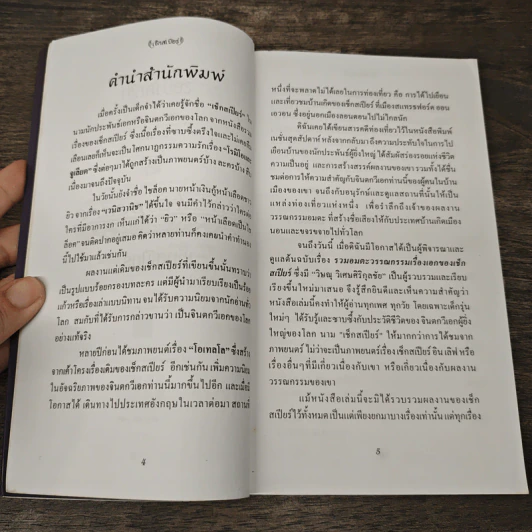 คำนำสำนักพิมพ์
เมื่อครั้งเป็นเด็กจำได้ว่าเคยรู้จักชื่อ "เช็กสเปียร์"
นามนักประพันธ์เอกหรือจินตกวีเอกของโลก จากหนังสือ
เรื่องของเช็กสเปียร์ ซึ่งเนื้อเรื่องที่ซาบซึ้งตรึงใจและไม่เคย
เลือนเลยก็เห็นจะเป็นโศกนาฏกรรมความรักเรื่อง "โรมิโอ
จูเลียต" ซึ่งต่อๆมาได้ถูกสร้างเป็นภาพยนตร์บ้าง ละครบ้าง
เนื่องมาจนถึงปัจจุบัน
ในวัยนั้นยังจำชื่อ ไชล็อค นายหน้าเงินกู้หน้าเลือดชาว
ยิว จากเรื่อง "เวนิสวาณิช" ได้ขึ้นใจ จนมีคำไว้กล่าวว่าใคร
ใครที่มีอาการงก เห็นแก่ได้ว่า "ยิว" หรือ "หน้าเลือดเป็น
ล็อค" จนติดปากอยู่เสมอ คิดว่าหลายท่านก็คงเคยนำคำทำนอง
นี้ไปใช้มาแล้วเช่นกัน
ผลงานแต่เดิมของเช็กสเปียร์ที่เขียนขึ้นนั้นทราบว่า
เป็นรูปแบบร้อยกรองบทละคร แต่มีผู้นำมาเรียบเรียงเป็นร้อย
แก้วหรือเรื่องเล่าแบบนิทาน จนได้รับความนิยมจากนักอ่าน
โลก สมกับที่ได้รับการกล่าวขานว่า เป็นจินตกวีเอกของโลก
อย่างแท้จริง
หลายปีก่อนได้ชมภาพยนตร์เรื่อง "โอเทลโล" ซึ่งสร้าง
จากเค้าโครงเรื่องเดิมของเช็กสเปียร์ อีกเช่นกัน เพิ่มความนิยม
ในอัจฉริยภาพของจินตกวีเอกท่านนี้มากขึ้นไปอีก และเมื่อมี
โอกาสได้ เดินทางไปประเทศอังกฤษในเวลาต่อมา สถานที่
4
หนึ่งที่จะพลาดไม่ได้เลยในการท่องเที่ยว คือ การได้ไปเยือน
และเที่ยวชมบ้านเกิดของเช็กสเปียร์ ที่เมืองสแทรทฟอร์ด ออน
เอวอน ซึ่งอยู่นอกเมืองลอนดอนไปไม่ไกลนัก
ดิฉันเคยได้เขียนสารคดีท่องเที่ยวไว้ในหนังสือพิมพ์
เนชั่นสุดสัปดาห์ หลังจากกลับมาถึงความประทับใจในการไป
เยือนบ้านของนักประพันธ์ผู้ยิ่งใหญ่ ได้สัมผัสร่องรอยแห่งชีวิต
ความเป็นอยู่ และการสร้างสรรค์ผลงานของเขา รวมทั้งได้
ทราบถึงการให้ความสำคัญกับจินตกวีเอกท่านนี้ของผู้คนในบ้าน
เมืองของเขา จนถึงกับอนุรักษ์และดูแลสถานที่นั้นให้เป็น
แหล่งท่องเที่ยวแห่งหนึ่ง เพื่อรำลึกถึงเจ้าของผลงาน
วรรณกรรมอมตะ ที่สร้างชื่อเสียงให้กับประเทศบ้านเกิดเมือง
นอนและขจรขจายไปทั่วโลก
จนถึงวันนี้ เมื่อดิฉันมีโอกาสได้เป็นผู้พิจารณาและ
ดูแลต้นฉบับเรื่อง รวมอมตะวรรณกรรมเรื่องเอกของเช็ก
สเปียร์ ซึ่งมี "วิษณุ วิเศษศิริกุลชัย" เป็นผู้รวบรวมและเรียบ
เรียงขึ้นใหม่มาเสนอ จึงรู้สึกยินดีและเห็นความสำคัญว่า
หนังสือเล่มนี้คงทำให้ผู้อ่านทุกเพศ ทุกวัย โดยเฉพาะเด็กรุ่น
ใหม่ๆ ได้รับรู้และซาบซึ้งกับประวัติชีวิตของจินตกวีเอกผู้ยิ่ง
ใหญ่ของโลก นาม "เช็กสเปียร์" ให้มากกว่าการได้ชมจาก
ภาพยนตร์ ไม่ว่าจะเป็นภาพยนตร์เรื่องเช็กสเปียร์ อิน เลิฟ หรือ
เรื่องอื่นๆที่มีเกี่ยวเนื่องกับเขา หรือเกี่ยวเนื่องกับผลงาน
วรรณกรรมของเขา
แม้หนังสือเล่มนี้จะมิได้รวบรวมผลงานของเช็ก
สเปียร์ไว้ทั้งหมด เป็นแต่เพียงยกมาบางเรื่องเท่านั้น แต่ทุกเรื่อง
5